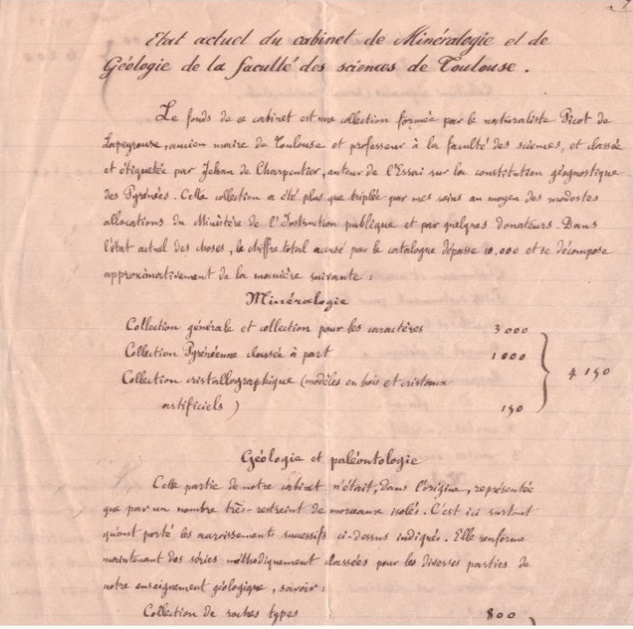 Etat actuel du cabinet de Minéralogie et de
Géologie de la faculté des sciences de Toulouse.
Le fonds de ce cabinet est une collection formée par le naturaliste Picot de
Lapeyrouse, ancien maire de Toulouse et professeur à la faculté des sciences, et classée
et étiquetée par Jehan de Charpentier, auteur de l'Essai sur la constitution géognostique
des Pyrénées. Cette collection a été plus que triplée par mes soins au moyen des modestes
allocations du Ministère de l'Instruction publique et par quelques donateurs. Dans
l'état actuel des choses, le chiffre total accusé par le catalogue dépasse 10,000 et se décompose
approximativement de la manière suivante :
Minéralogie
Collection générale et collection pour les caractères 3000
Collection Pyrénéenne classée à part 1000
Collection cristallographique (modèles en bois et cristaux
artificiels) 150
4150
Géologie et paléontologie
Cette partie de notre cabinet n'était, dans l'origine, représentée
que par un nombre très-restreint de morceaux isolés. C'est ici surtout
qu'ont porté les accroissements successifs ci-dessus indiqués. Elle renferme
maintenant des séries méthodiquement classées pour les diverses parties de
notre enseignement géologique, savoir :
Collection de roches types 800